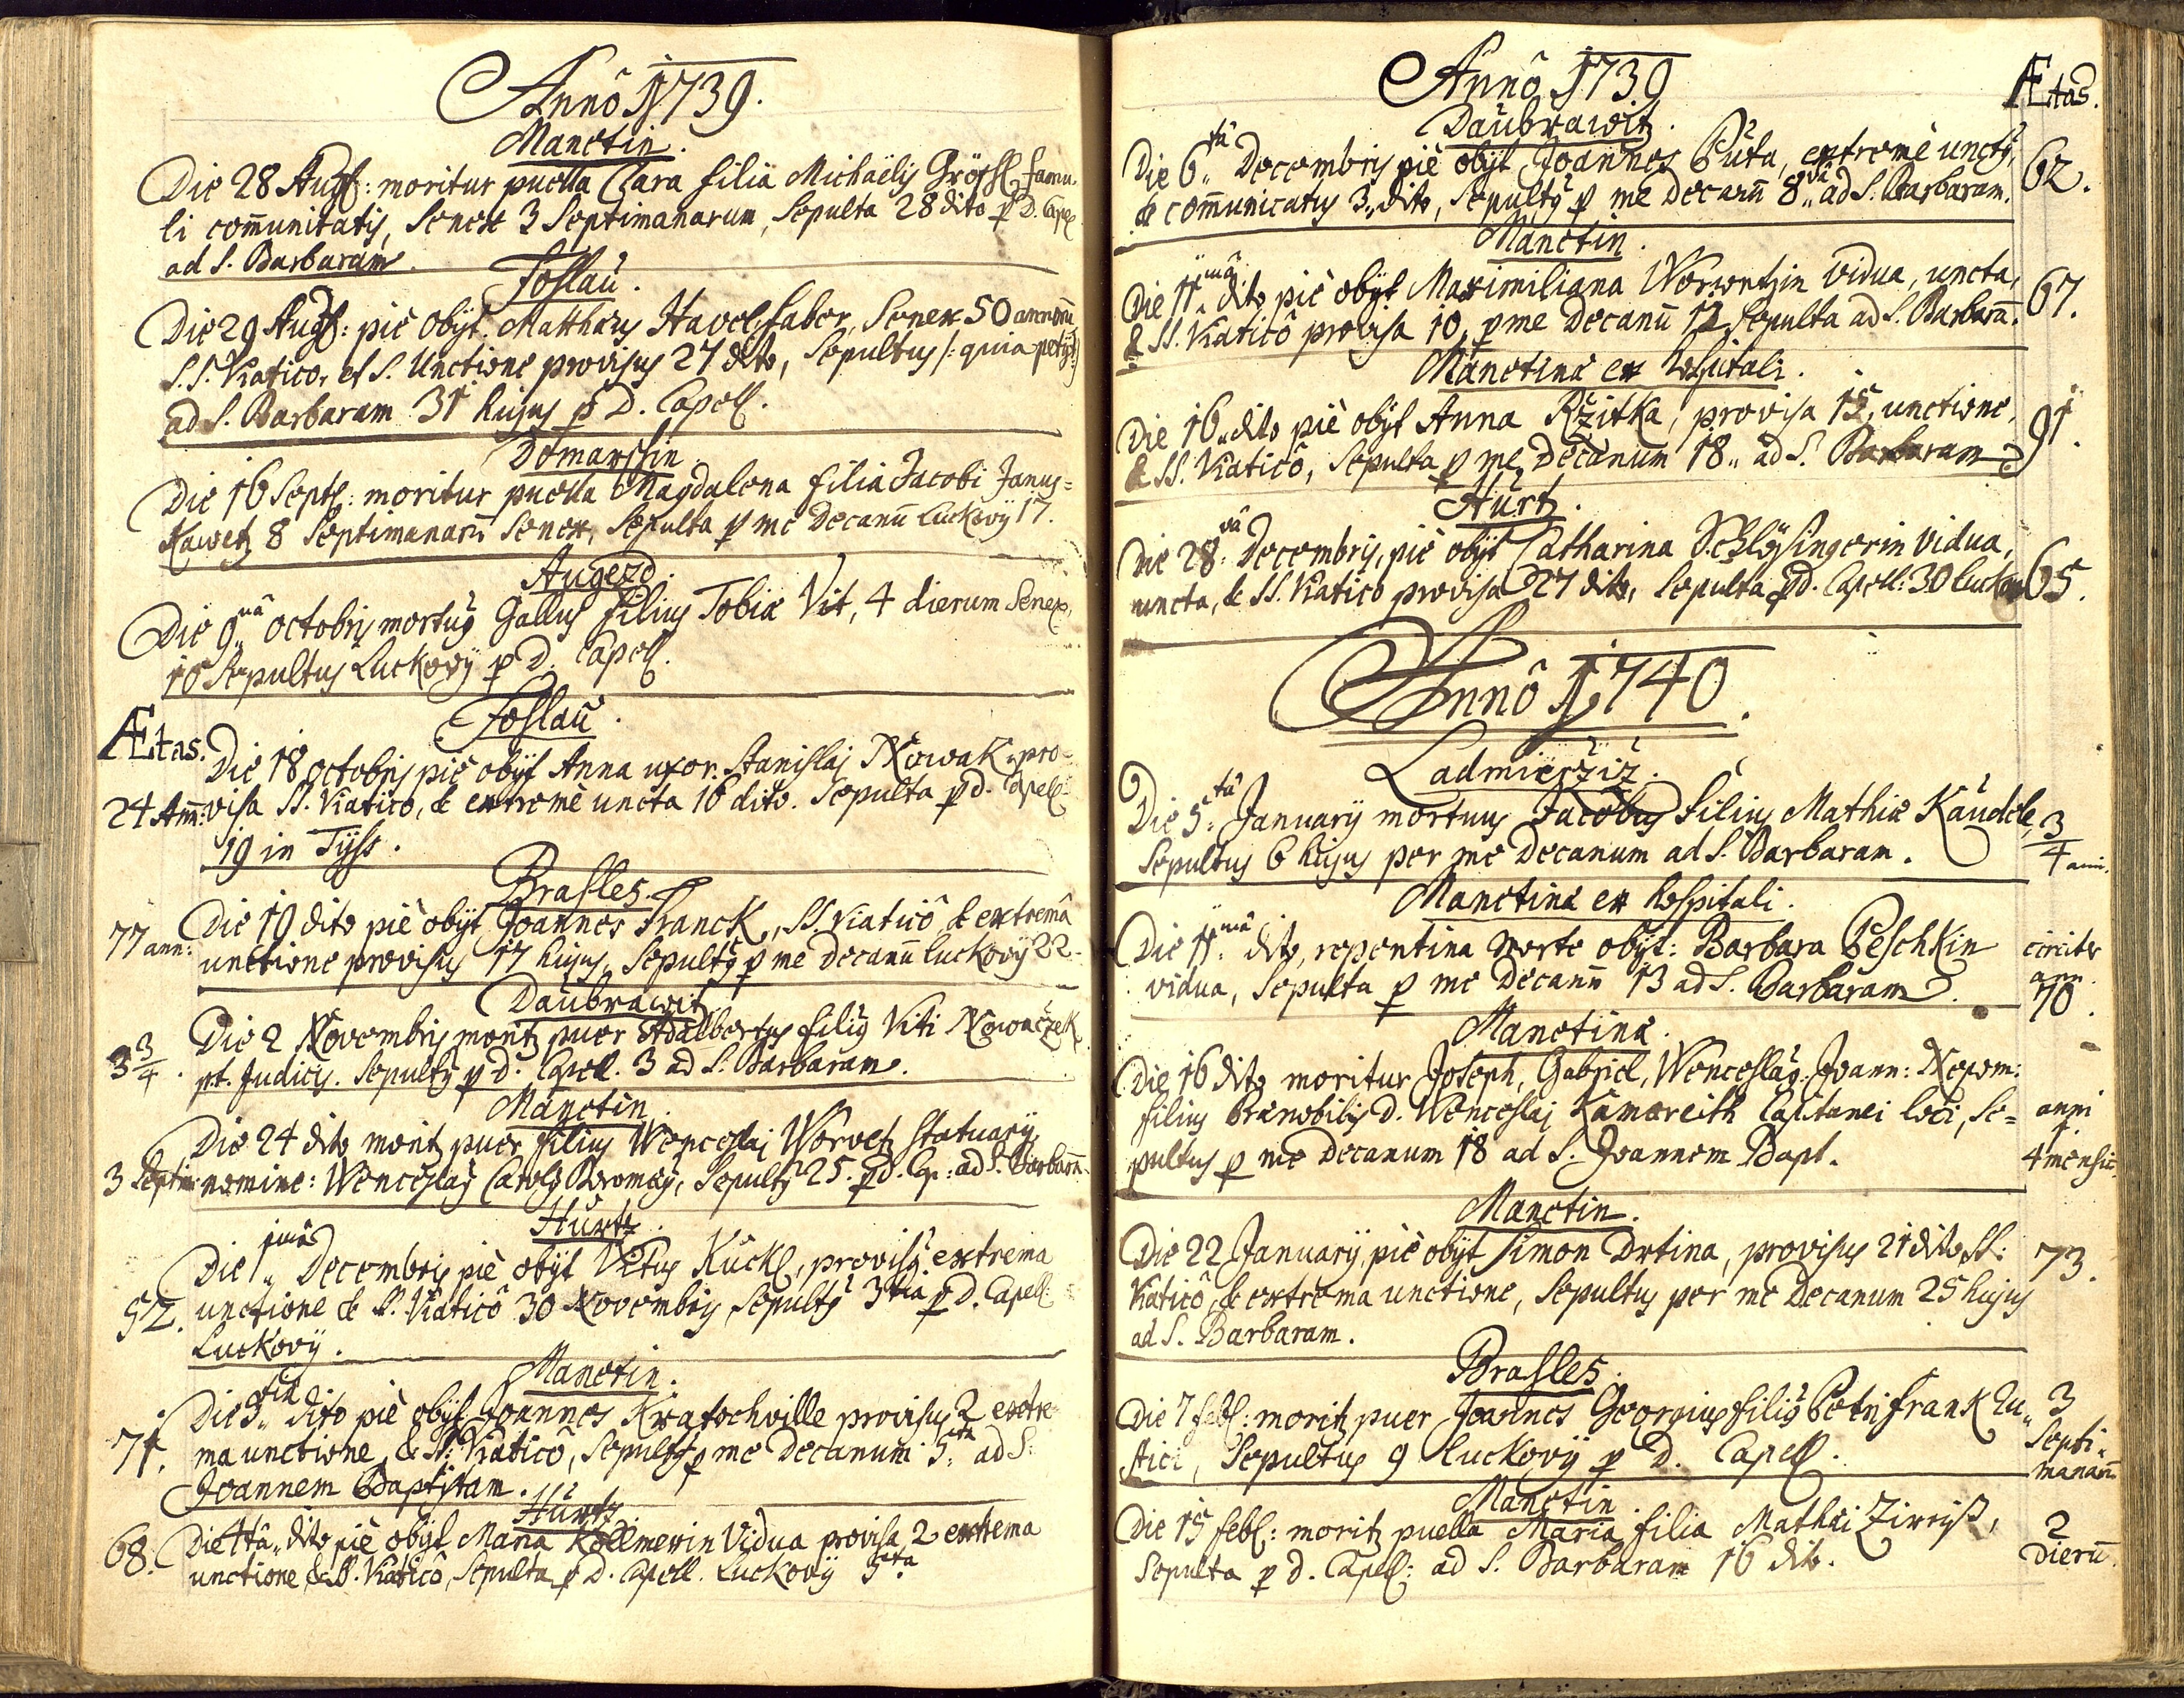 Annô 1739.
Manetin.
Die 28 Augs: moritur puella Clara filia Michaëlis Grössl, famu-
li com̄unitatis, Senex 3 Septimanarum, Sepulta 28 dito p D. Capel
ad S. Barbaram.
Foslau.
Die 29 Augs: piè obÿt Matthæus Havel, faber, Senex 50 annorū
S.S. Viatico, et S. Unctione provisus 27 dito, Sepultus /: quia petÿt :/
ad S. Barbaram 31 hujus p D. Capell.
Domaschin
Die 16 Septl: moritur puella Magdalena filia Jacobi Janus=
Kawetz 8 Septimanarū Senex, Sepulta p me Decanū Luckovÿ 17.
Augezd.
Die 9nâ octobris mortuus Gallus filius Tobiæ Vit, 4 dierum Senex,
10 Sepultus Luckovÿ p D. Capell.
Foslau.
Ætas.
Die 18 octobris piè obÿt Anna uxor Stanislai Nowak, pro-
24 Ann: visa SS. Viatico, & extremè uncta 16 dito. Sepulta p d. Capell.
19 in Tÿss.
Brasles.
77 ann: Die 19 dito piè obÿt Joannes Franck, SS. Viaticô & extremâ
unctione provisus 17 hujus, Sepultus p me Decanū Luckovÿ 22.
Daubrawitz
Die 2 Novembris moritz puer Adalbertus filius Viti Nowaczek
3 3/4. pt. Judicis. Sepultus p D. Capell. 3 ad S. Barbaram.
Manetin.
Die 24 dito moritz puer filius Wenceslai Worvetz Statuarÿ
3 Septim: nomine: Wenceslaus Carolus Boromæus, Sepultus 25. p D. Cap: ad S. Barbarā.
Hurtz.
Die 1mâ Decembris piè obÿt Vitus Kückl, provisus extrema
52. unctione & S. Viaticô 30 Novembris, Sepultus 3tia p D. Capell:
Luckovÿ.
Manetin.
Die 3tia dito piè obÿt Joannes Kratochville provisus 2 extre-
71. ma unctione, & SS: Viaticô, Sepultus p me Decanum 5ta ad S:
Joannem Baptistam.
Hurtz
68. Die 4tâ dito piè obÿt Maria Köllmerin Vidua provisa 2 extrema
unctione, & SS. Viaticô, Sepulta p D. Capell. Luckovÿ 5ta
Annô 1739
Ætas.
Daubrawitz.
Die 6tâ Decembris piè obÿt Joannes Puta, extremè unctus, 62.
& com̄unicatus 3 dito, Sepultus p me Decanū 8vâ ad S. Barbaram.
Manetin.
Die 11mâ dito piè obÿt Maximiliana Worwetzin Vidua, uncta, 67.
& SS. Viaticô provisa 10, p me Decanū 12 Sepulta ad S. Barbarā.
Manetinæ ex hospitali.
Die 16 dito piè obÿt Anna Ržitka, provisa 15, unctione, 91.
& SS. Viaticô, Sepulta p me Decanum 18 ad S. Barbaram
Hurtz.
Die 28vâ Decembris, piè obÿt Catharina Schlösingerin Vidua,
uncta, & SS. Viatico provisa 27 dito, Sepulta p d. Capell: 30 Luckov 65.
Annô 1740.
Ladmieržiž.
Die 5tâ Januarÿ mortuus Jacobus filius Mathiæ Kaudele, 3/4 anni.
Sepultus 6 hujus per me Decanum ad S. Barbaram.
Manetinæ ex hospitali.
Die 11mâ dito, repentina morte obÿt: Barbara Peschkin circiter
vidua, Sepulta p me Decanū 13 ad S. Barbaram. ann 70.
Manetinæ.
Die 16 dito moritur Joseph, Gabriel, Wenceslaus, Joann: Nepom:
filius Prænobilis D. Wenceslai Kamareith Capitanei loci, Se= anni
pultus p me Decanum 18 ad S. Joannem Bapt. 4 mensiū
Manetin.
Die 22 Januarÿ, piè obÿt Simon Drtina, provisus 21 dito SS: 73.
Viaticô, & extrema unctione, Sepultus per me Decanum 25 hujus
ad S. Barbaram.
Brasles.
Die 7 febl: moritz puer Joannes Georgius filius Petri Frank Ru- 3
stici, Sepultus 9 Luckovÿ p D. Capell. Septi-
manarū
Manetin.
Die 15 febl: moritz puella Maria filia Mathæi Zirriß, 2
Sepulta p d. Capell: ad S. Barbaram 16 dito. Dierū.